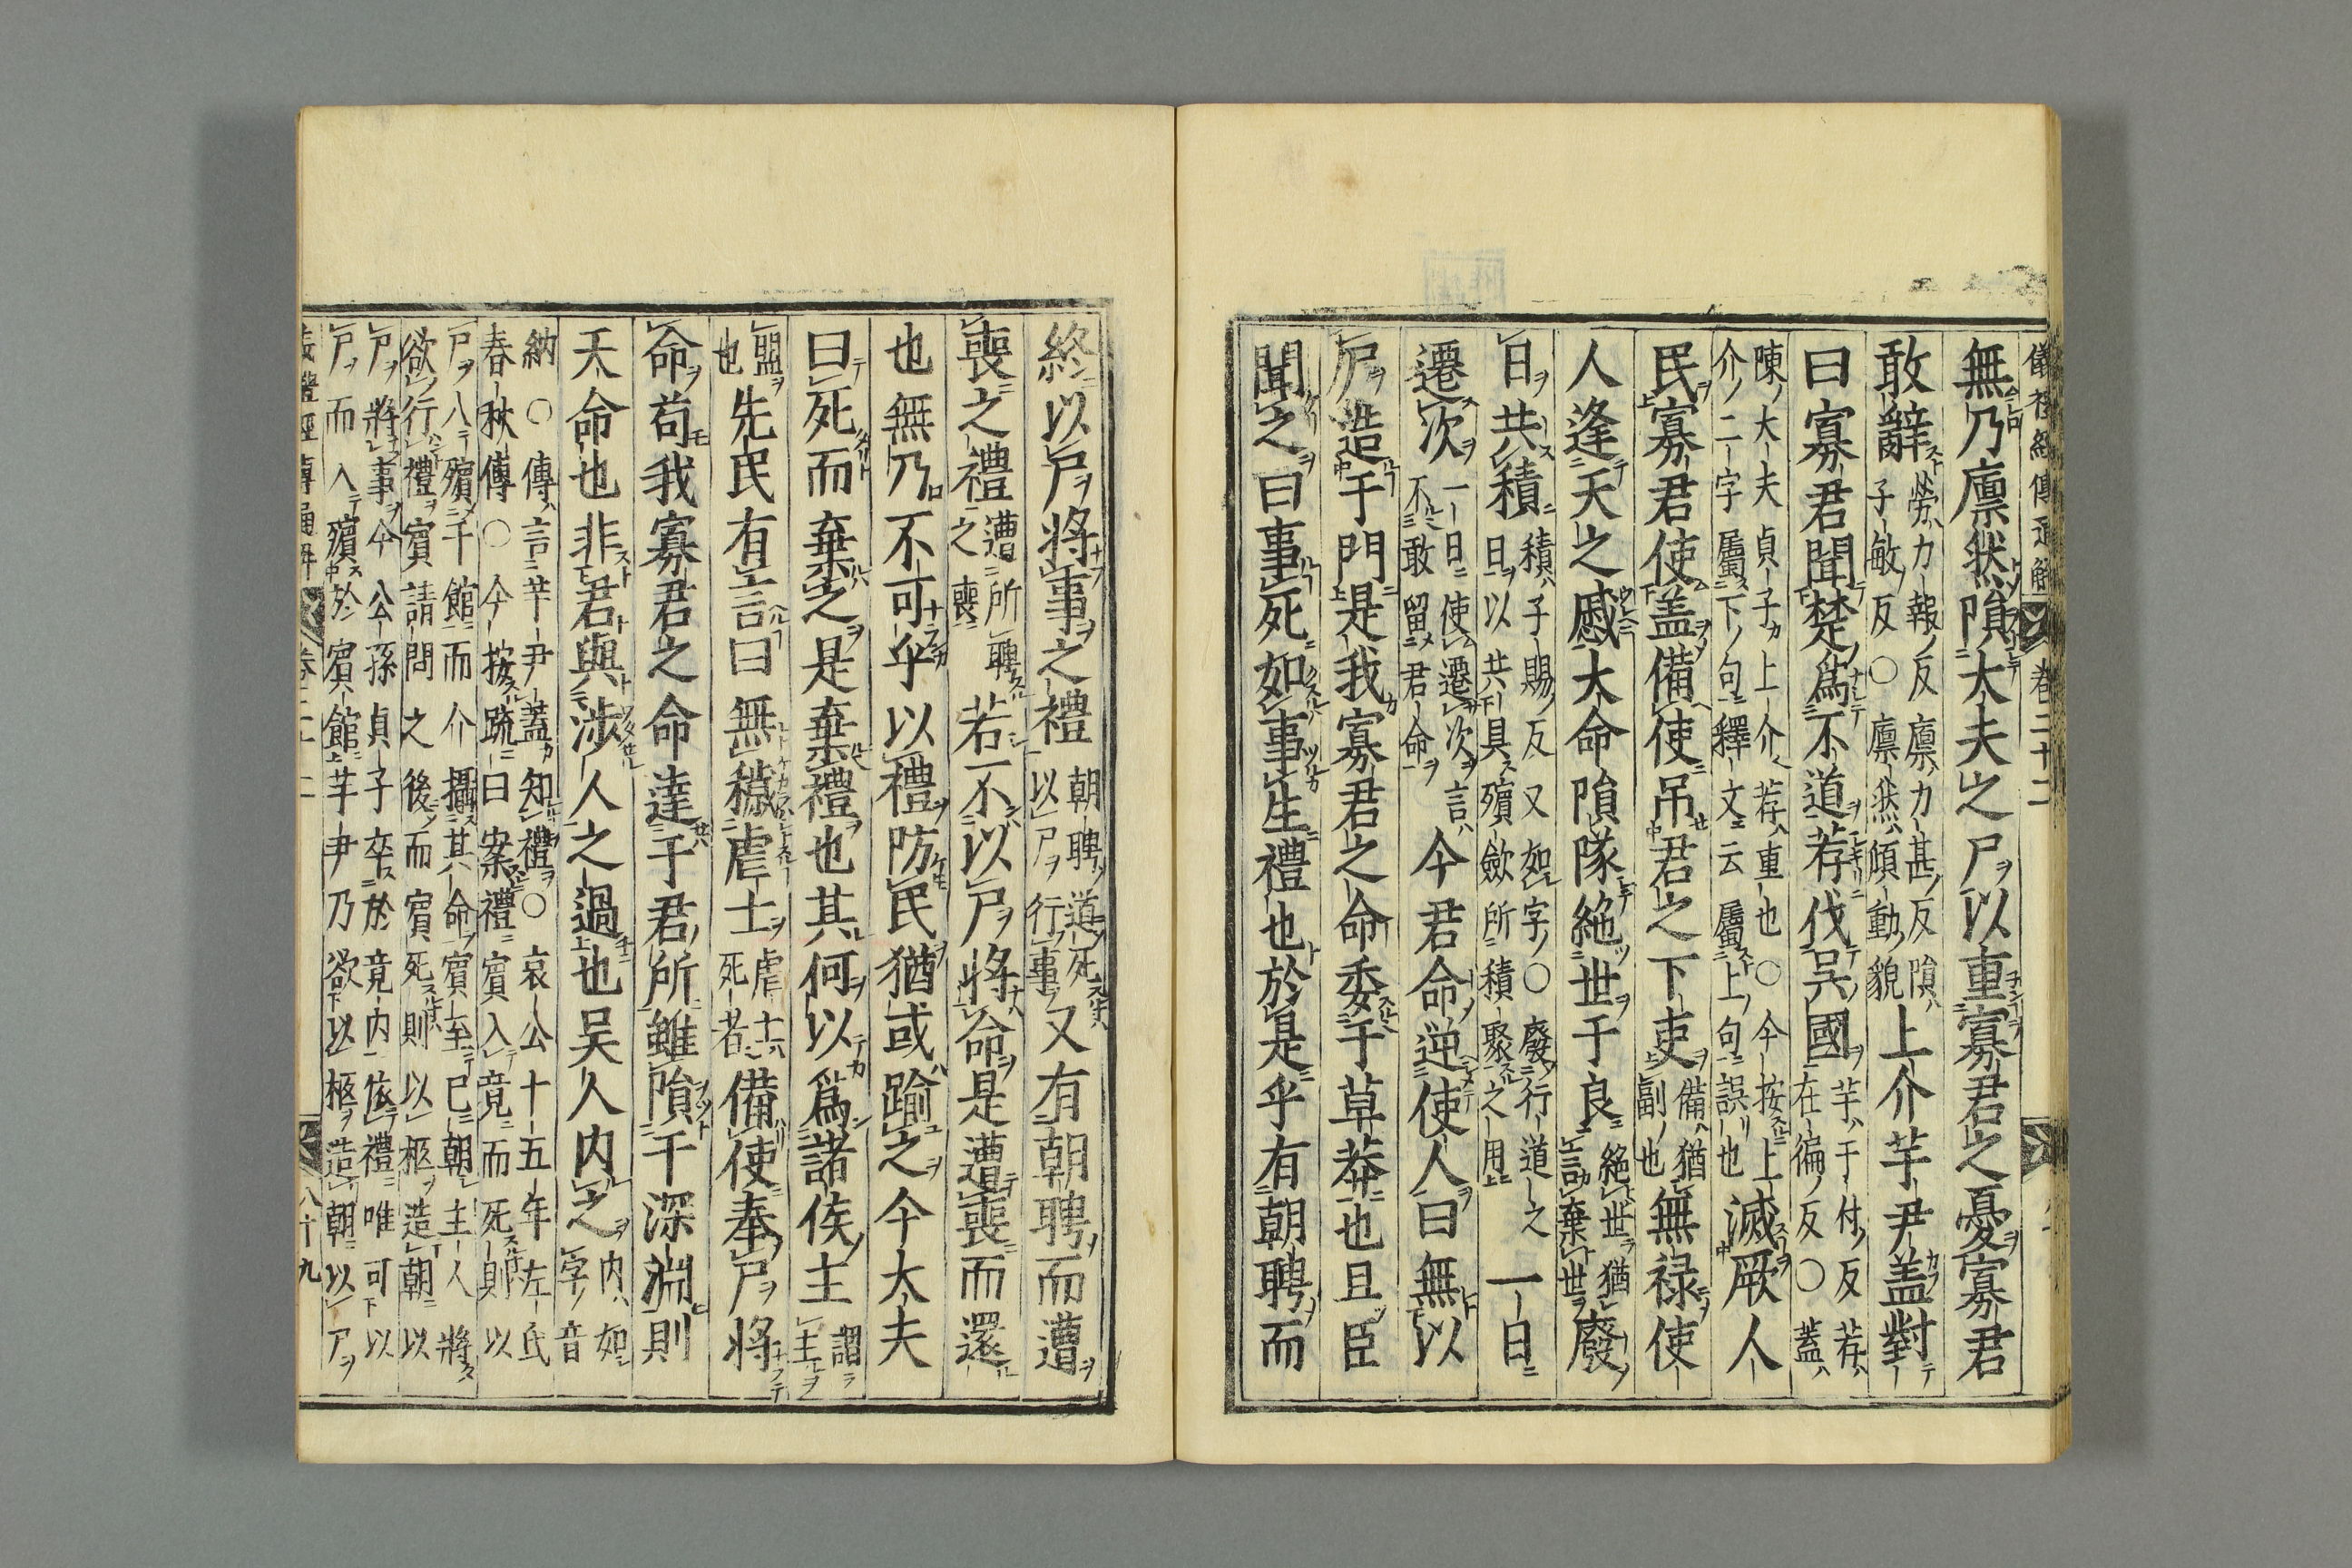 儀禮經傳通解 卷二十二
無乃廪然隕大夫之尸以重寡君之憂寡君
敢辭 勞力報反廪力甚反隕
子敏反○廪然傾動貌 上介芋尹盖對
曰寡君聞楚為不道荐伐呉國 芋于付反荐
在徧反○蓋
陳大夫貞子上介荐重也○今按上
介二字屬下句釋文云屬上句誤也 滅厥人
民寡君使盖備使吊君之下吏 備猶
副也 無禄使
人逢天之慼大命隕隊絶世于良 絶世猶
言棄世 廢
日共積 積子賜反又如字○廢行道之
日以共具殯歛所積聚之用 一日
遷次 一日使遷次言
不敢留君命 今君命逆使人曰無以
尸造于門是我寡君之命委于草莽也且臣
聞之曰事死如事生禮也於是乎有朝聘而
終以尸將事之禮 朝聘道死
以尸行事 又有朝聘而遭
喪之禮 遭所聘
之喪 若不以尸將命是遭喪而還
也無乃不可乎以禮防民猶或踰之今大夫
曰死而棄之是棄禮也其何以為諸侯主 謂
主
盟
也 先民有言曰無穢虐士 虐士
死者 備使奉尸將
命苟我寡君之命達于君所雖隕于深淵則
天命也非君與涉人之過也吴人内之 内如
字音
納○傳言芋尹蓋知禮○哀公十五年左氏
春秋傳○今按疏曰案禮賓入竟而死則以
尸入殯于館而介攝其命賓至已朝主人將
欲行禮賓請問之後而賓死則以柩造朝以
尸將事今公孫貞子卒於竟内依禮唯可以
尸而入殯於賓館芋尹乃欲以柩造朝以尸
卷二十二 八十九